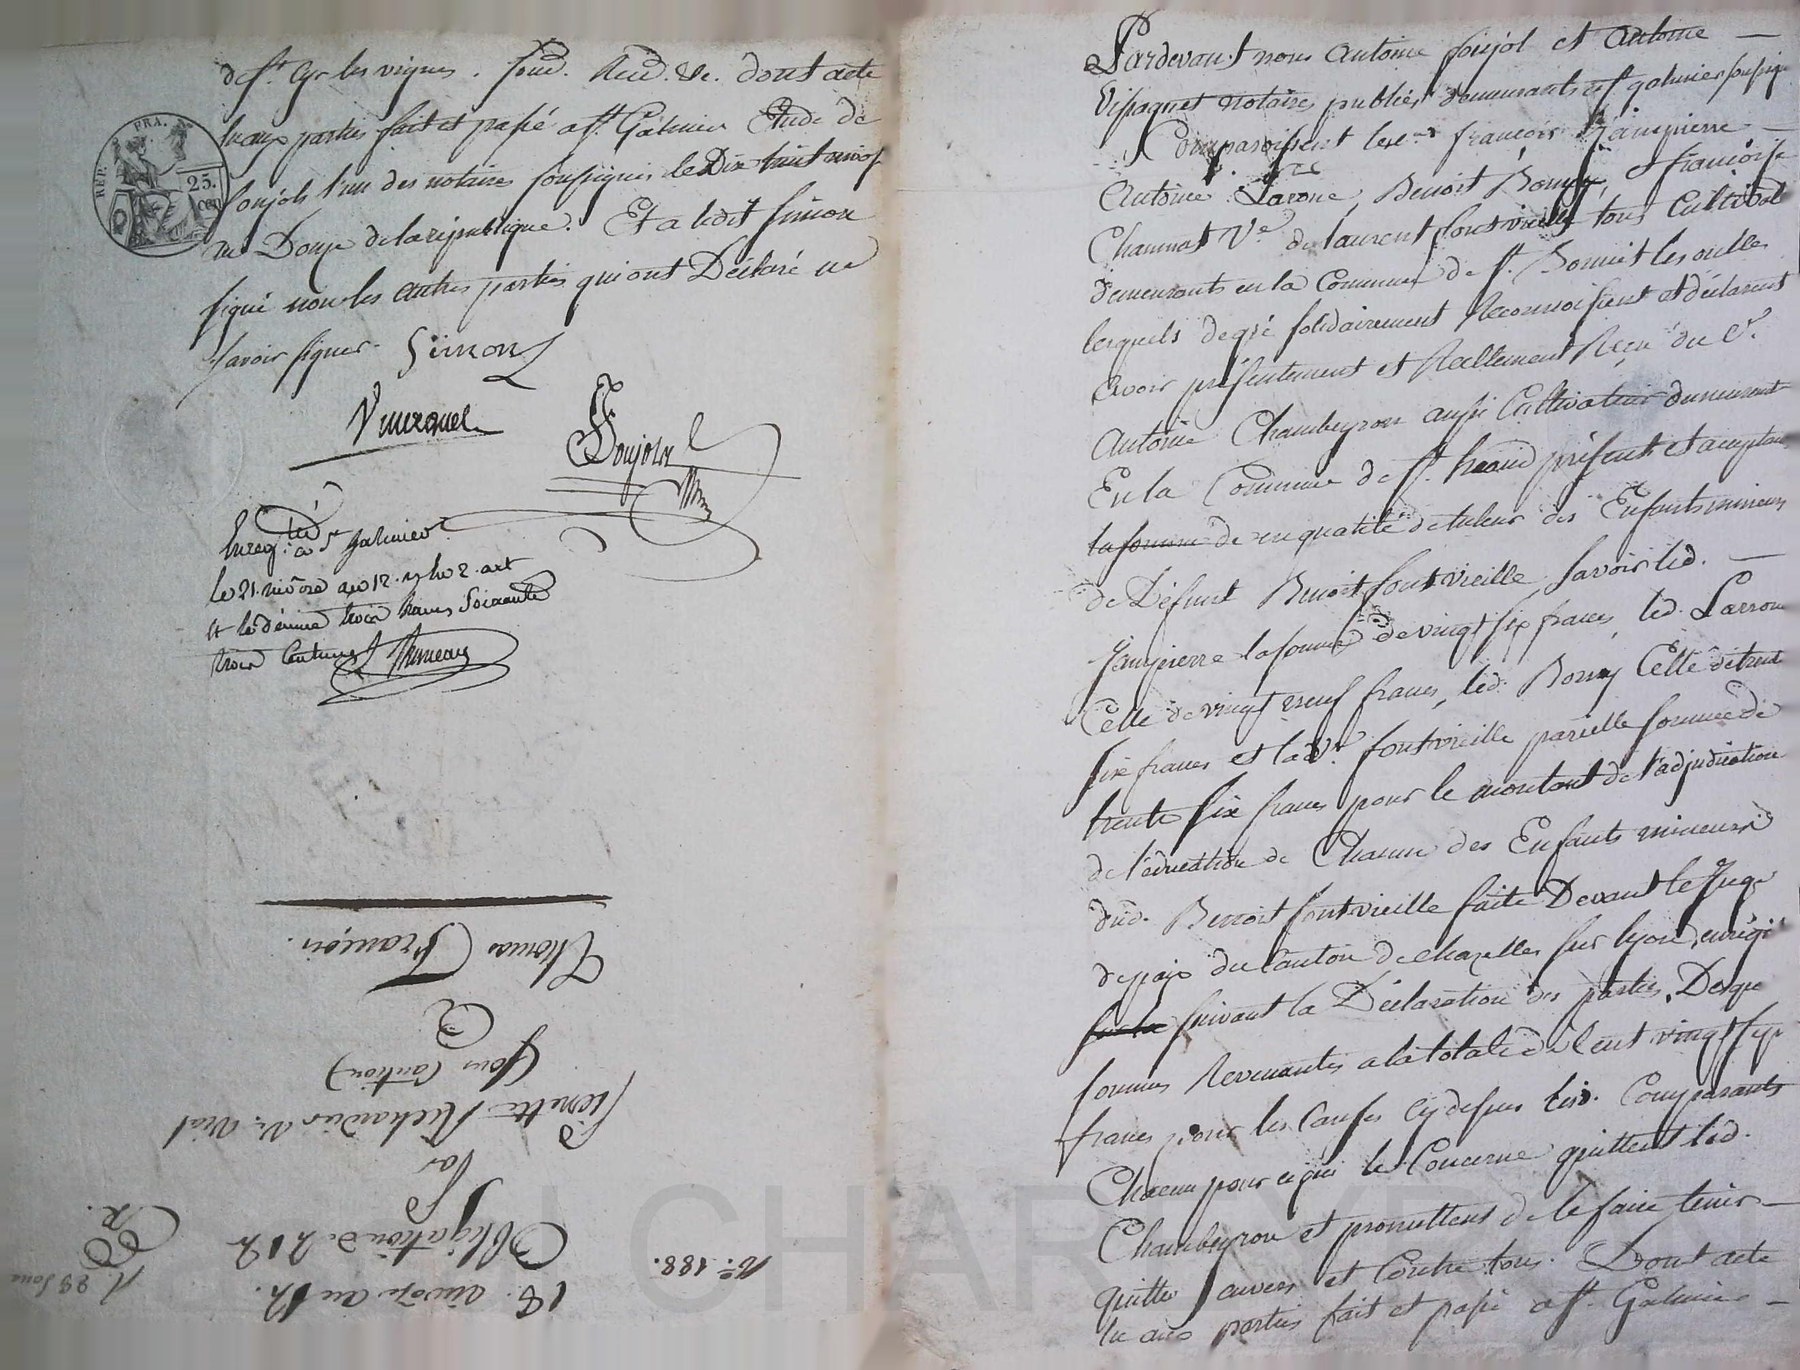 de St. Cyr les vignes. soud. Rend. &c. dont acte
lu aux parties fait et passé a St. Galmier Etude de
foujols l'un des notaires soussignés le Dix huit nivose
an Douze de la republique. Et a ledit Simon
signé non les autres parties qui ont Déclaré ne
savoir signer.
Simon
foujols
REP. FRA.
25.
cen
Enreg. té a St galmier
le 21. nivôse an 12. art
et le dixième trois francs soixante
trois centimes
Thomas françon.
A
(sous caution)
fleurie Richaud Ve. Vial
Par
Obligation de 212
18. nivôse an 12.
No. 188.
Pardevant nous antoine foujol et antoine
Vipaquet notaires publics demeurants a St galmier soussignés
Comparoissent les c.ns françois Janpierre
antoine Larone, Benoit Bonny, & françoise
Chaumat Ve. de laurent fontvieille tous Cultivat
demeurants en la Commune de St. Bonnet les oulles
lesquels de gré solidairement Reconnoissent et déclarent
avoir présentement et Réellement Reçu du C.
antoine Chambeyron aussi Cultivateur demeurant
En la Commune de St. heand présent et acceptant
la somme de en qualité de tuteur des Enfants mineurs
de Défunt Benoit fontvieille, savoir led.
Janpierre la somme de vingt six francs, led. Larrone
Celle de vingt neuf francs, led. Bonny Celle de trente
six francs et lad. Ve. fontvieille pareille somme de
trente six francs pour le montant de l'adjudication
de l'éducation de Chacun des Enfants mineurs
dud. Benoit fontvieille faite Devant le Juge
de paix du Canton de chazelles sur lyon, enrégit
suivant la Déclaration des parties. Desque
sommes Revenantes a la totale de Cent vingt sept
francs pour les Causes cy dessus lesd. Comparants
Chacun pour ce qui le Concerne quittent led.
Chambeyron et promettent de le faire tenir
quitte envers et Contre tous. Dont acte
lu aux parties fait et passé a St. Galmier